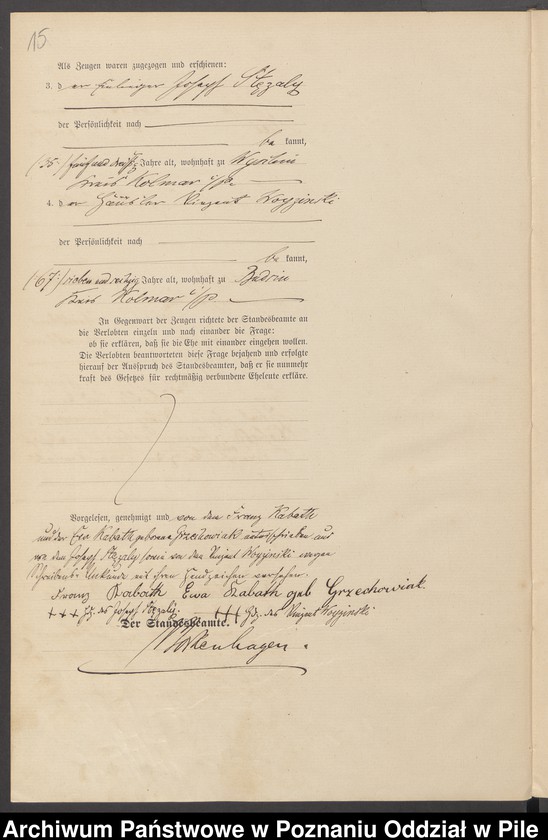 15
Als Zeugen waren zugezogen und erschienen:
3. der Einlieger Joseph
der Persönlichkeit nach
be kannt,
(35) fünf und dreißig Jahre alt, wohnhaft zu
Kreis Kolmar i/P.
4. der Häusler Vinzent Woyzinski
der Persönlichkeit nach
be kannt,
(67) sieben und sechzig Jahre alt, wohnhaft zu Budzin
Kreis Kolmar i/P.
In Gegenwart der Zeugen richtete der Standesbeamte an
die Verlobten einzeln und nach einander die Frage:
ob sie erklären, daß sie die Ehe mit einander eingehen wollen.
Die Verlobten beantworteten diese Frage bejahend und erfolgte
hierauf der Ausspruch des Standesbeamten, daß er sie nunmehr
kraft des Gesetzes für rechtmäßig verbundene Eheleute erkläre.
Vorgelesen, genehmigt und von dem Franz Kabath
und der Eva Kabath geborene Grzechowiak unterschrieben und
von dem Joseph sowie von dem Vinzent Woyzinski wegen
Schreibens Unkunde mit ihren Handzeichen versehen.
Franz Kabath Ewa Kabath geb Grzechowiak
+++ Hz. des Joseph +++ Hz. des Vinzent Woyzinski
Der Standesbeamte.
Archiwum Państwowe w Poznaniu Oddział w Pile